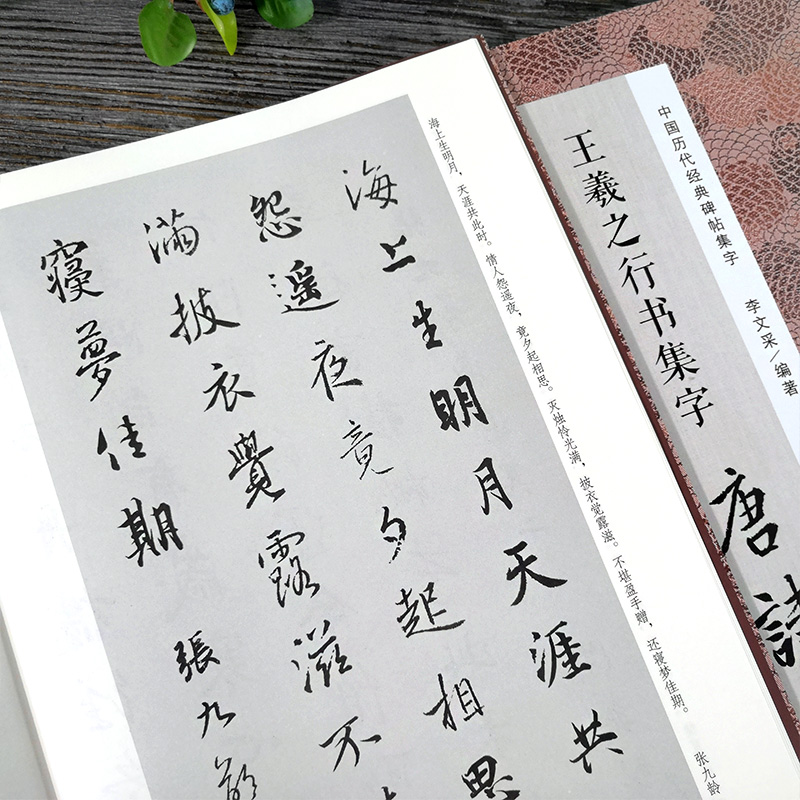 海上生明月天涯共
怨遥夜竟夕起相思
滿披衣覺露滋不
寝夢佳期
張九齡
海上生明月，天涯共此时。情人怨遥夜，竟夕起相思。灭烛怜光满，披衣觉露滋。不堪盈手赠，还寝梦佳期。
张九龄
中国历代经典碑帖集字
李文采／编著
王羲之行书集字
唐詩